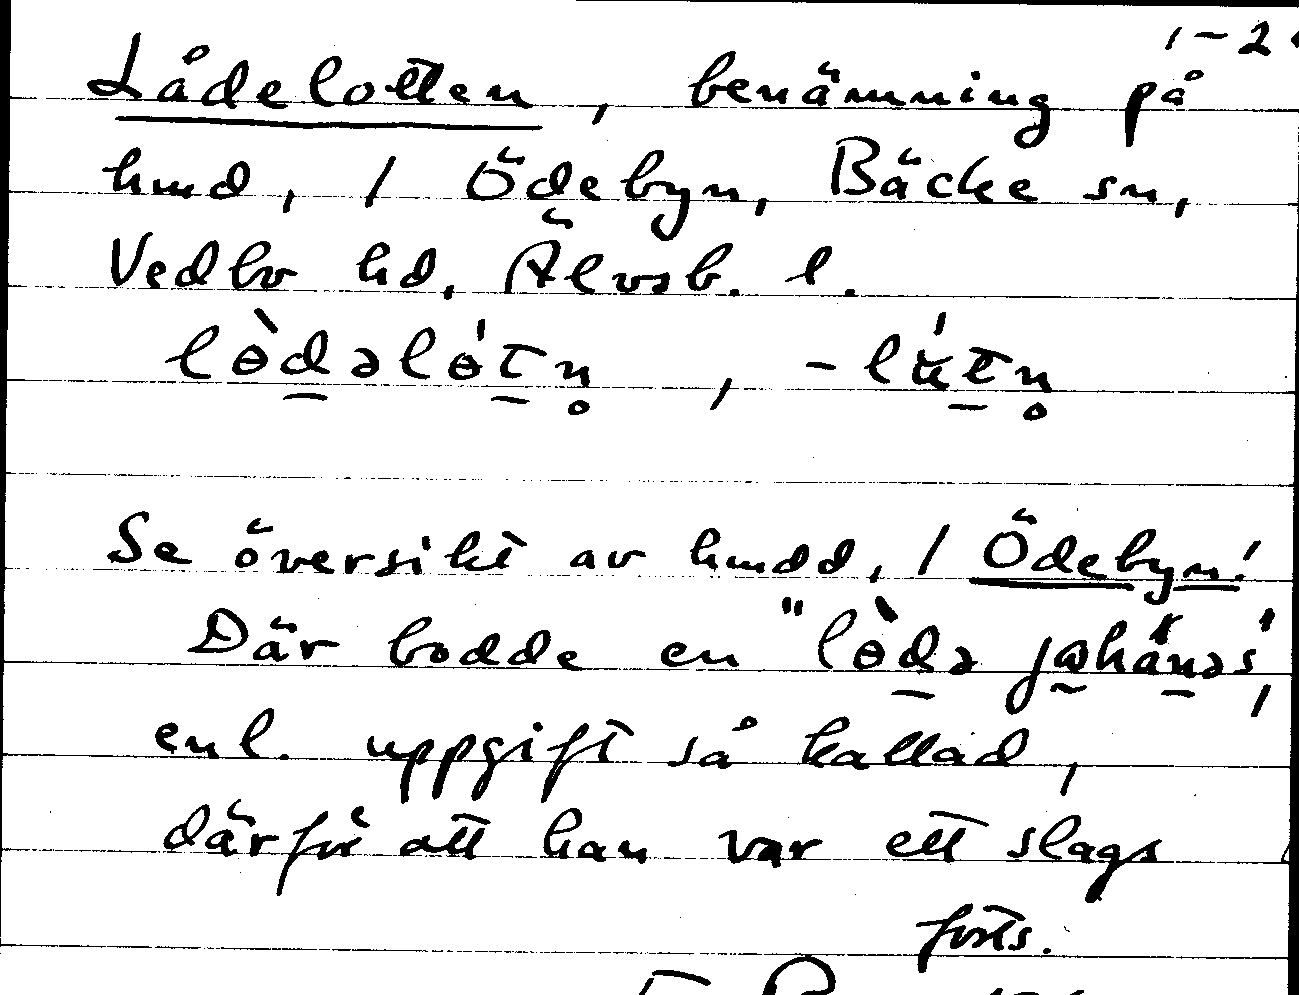 1-2.
Lådelotten, benämning på
hmd, / Ödebyn, Bäcke sn,
Vedbo hd, Älvsb. l.
lɵ̀d̠əlɵ́t̠n̥, -lʉ́t̠n̥
Se översikt av hmdd, / Ödebyn!
Där bodde en "lɵ̀d̠ə
enl. uppgift så kallad,
därför att han var ett slags
forts.